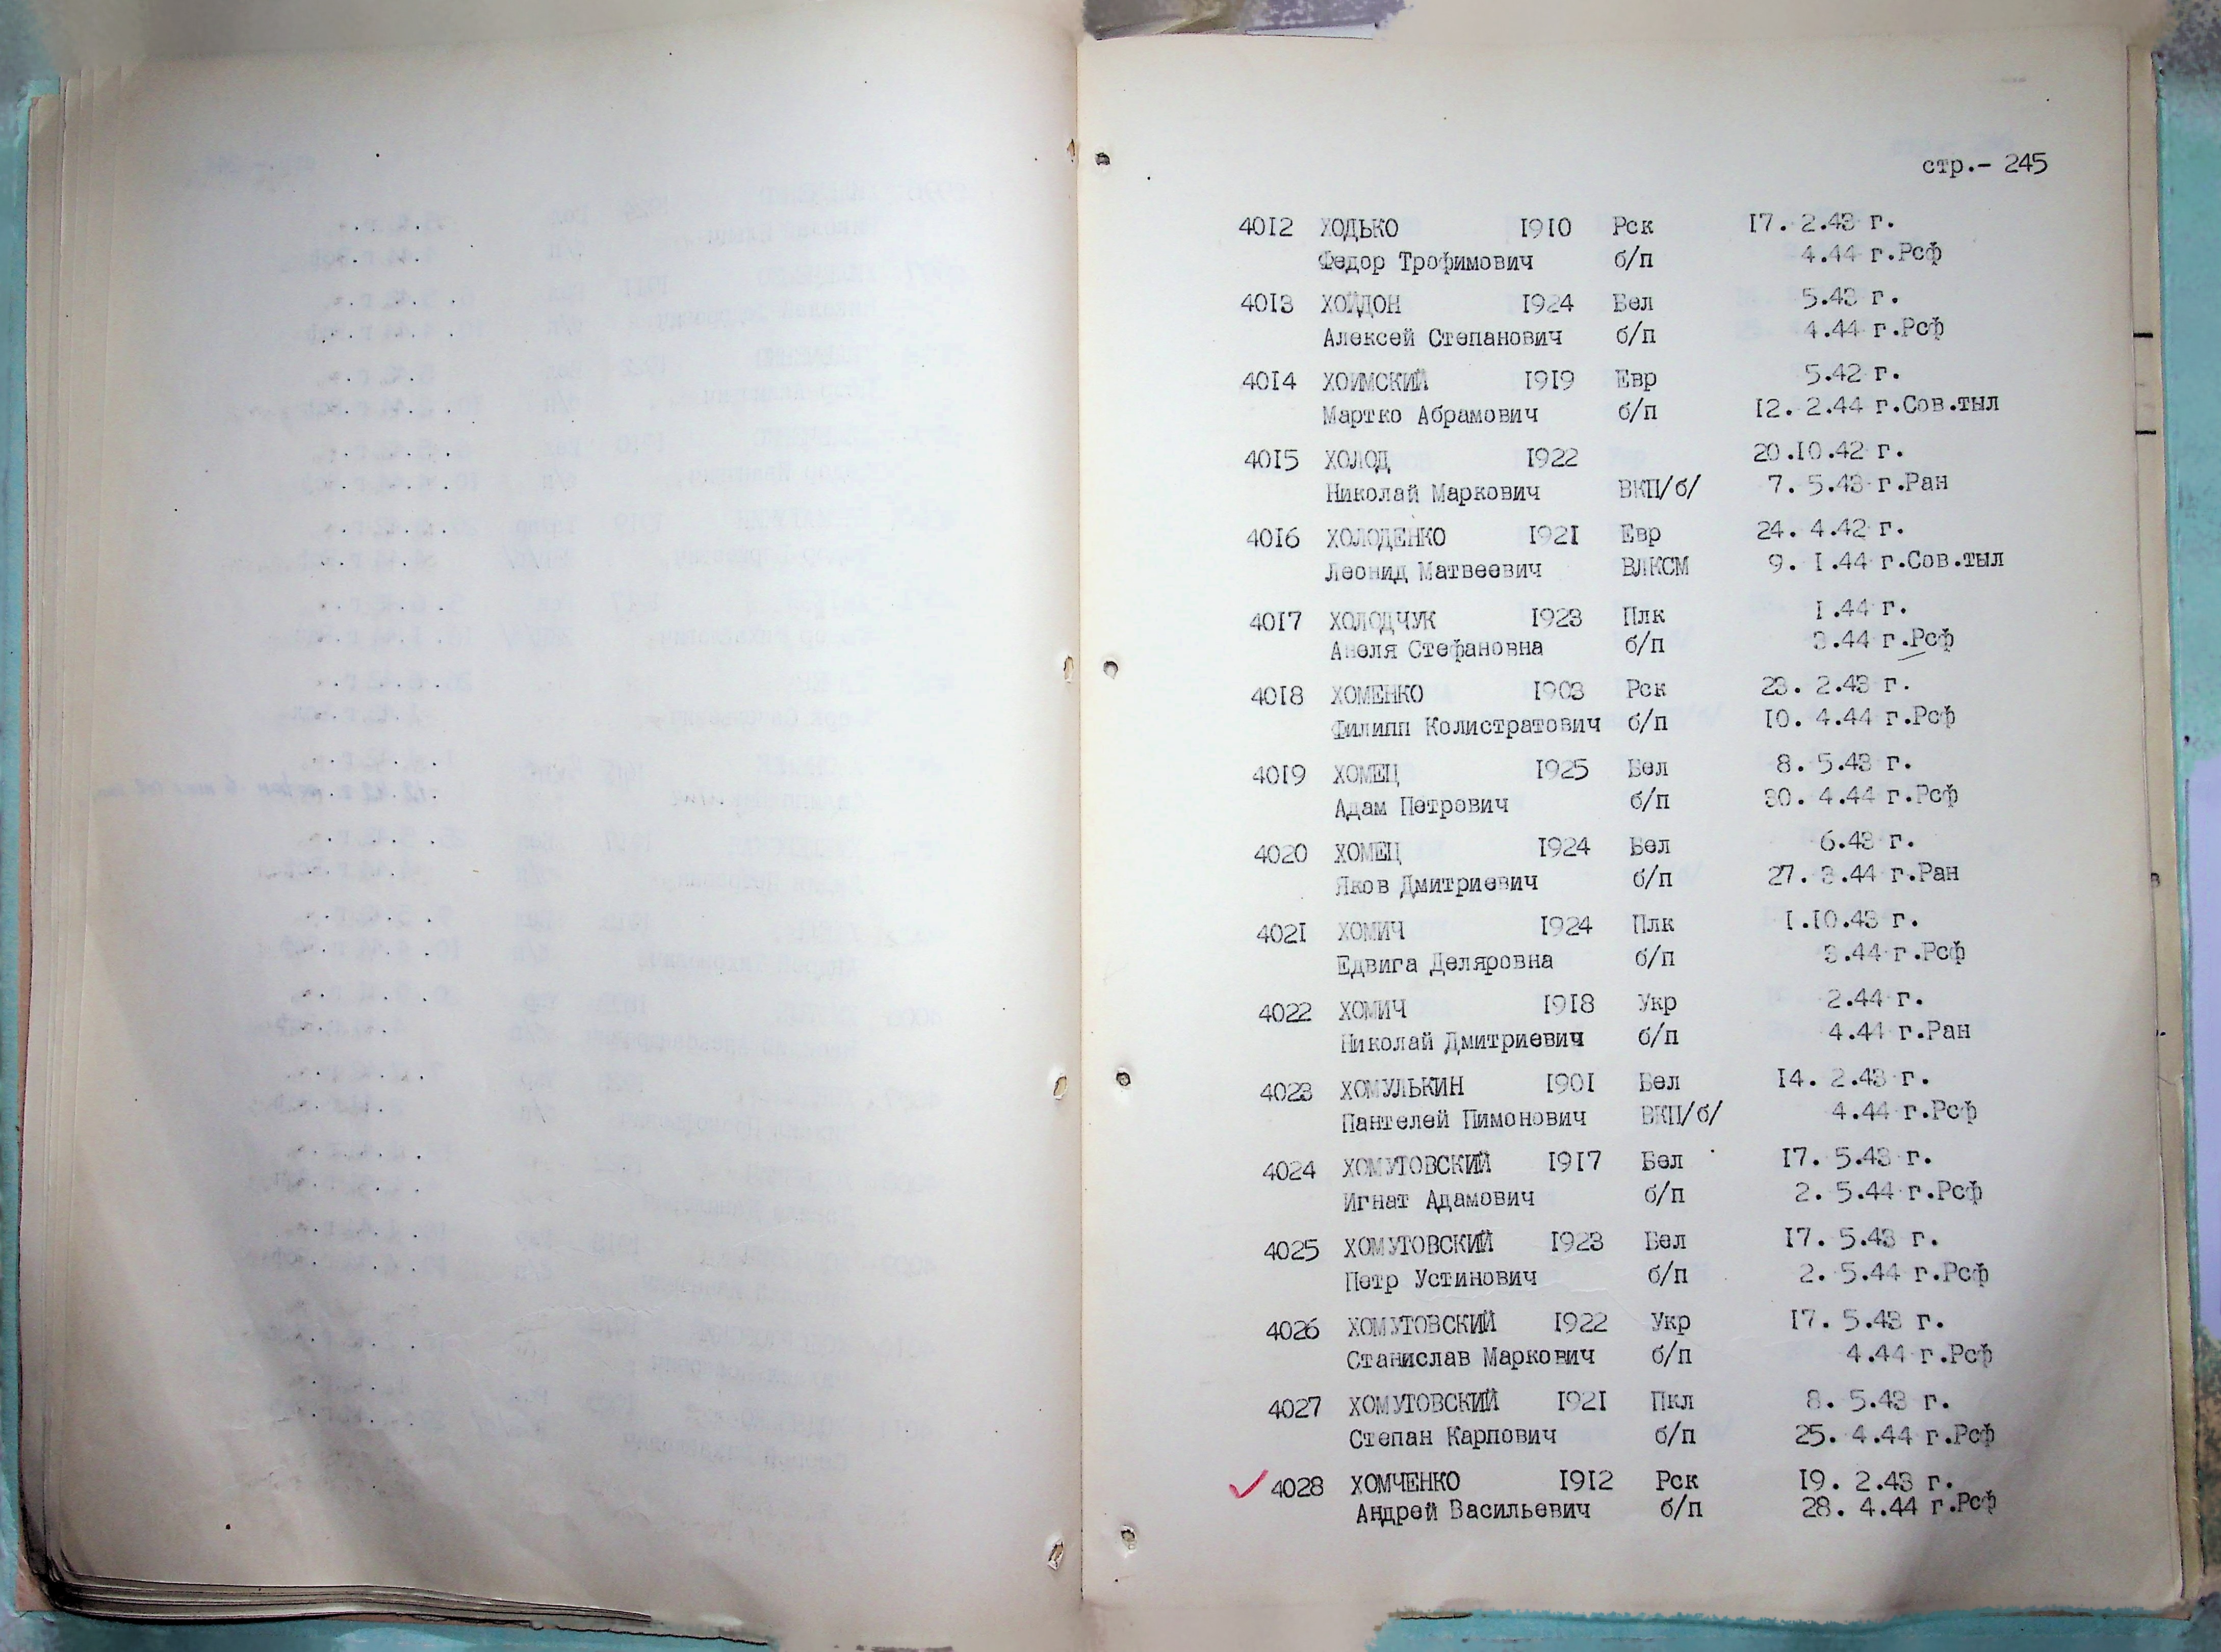 стр.- 245
4012 ХОДЬКО 1910 Рск 17. 2.43 г.
Федор Трофимович б/п 4.44 г.Рсф
4013 ХОЙДОН 1924 Бел 5.43 г.
Алексей Степанович б/п 4.44 г.Рсф
4014 ХОИМСКИЙ 1919 Евр 5.42 г.
Мартко Абрамович б/п 12. 2.44 г.Сов.тыл
4015 ХОЛОД 1922 20.10.42 г.
Николай Маркович ВКП/б/ 7. 5.43 г.Ран
4016 ХОЛОДЕНКО 1921 Евр 24. 4.42 г.
Леонид Матвеевич ВЛКСМ 9. 1.44 г.Сов.тыл
4017 ХОЛОДЧУК 1923 Плк 1.44 г.
Анеля Стефановна б/п 3.44 г.Рсф
4018 ХОМЕНКО 1903 Рск 23. 2.43 г.
Филипп Колистратович б/п 10. 4.44 г.Рсф
4019 ХОМЕЦ 1925 Бел 8. 5.43 г.
Адам Петрович б/п 30. 4.44 г.Рсф
4020 ХОМЕЦ 1924 Бел 6.43 г.
Яков Дмитриевич б/п 27. 3.44 г.Ран
4021 ХОМИЧ 1924 Плк 1.10.43 г.
Едвига Деляровна б/п 3.44 г.Рсф
4022 ХОМИЧ 1918 Укр 2.44 г.
Николай Дмитриевич б/п 4.44 г.Ран
4023 ХОМУЛЬКИН 1901 Бел 14. 2.43 г.
Пантелей Пимонович ВКП/б/ 4.44 г.Рсф
4024 ХОМУТОВСКИЙ 1917 Бел 17. 5.43 г.
Игнат Адамович б/п 2. 5.44 г.Рсф
4025 ХОМУТОВСКИЙ 1923 Бел 17. 5.43 г.
Петр Устинович б/п 2. 5.44 г.Рсф
4026 ХОМУТОВСКИЙ 1922 Укр 17. 5.43 г.
Станислав Маркович б/п 4.44 г.Рсф
4027 ХОМУТОВСКИЙ 1921 Пкл 8. 5.43 г.
Степан Карпович б/п 25. 4.44 г.Рсф
4028 ХОМЧЕНКО 1912 Рск 19. 2.43 г.
Андрей Васильевич б/п 28. 4.44 г.Рсф